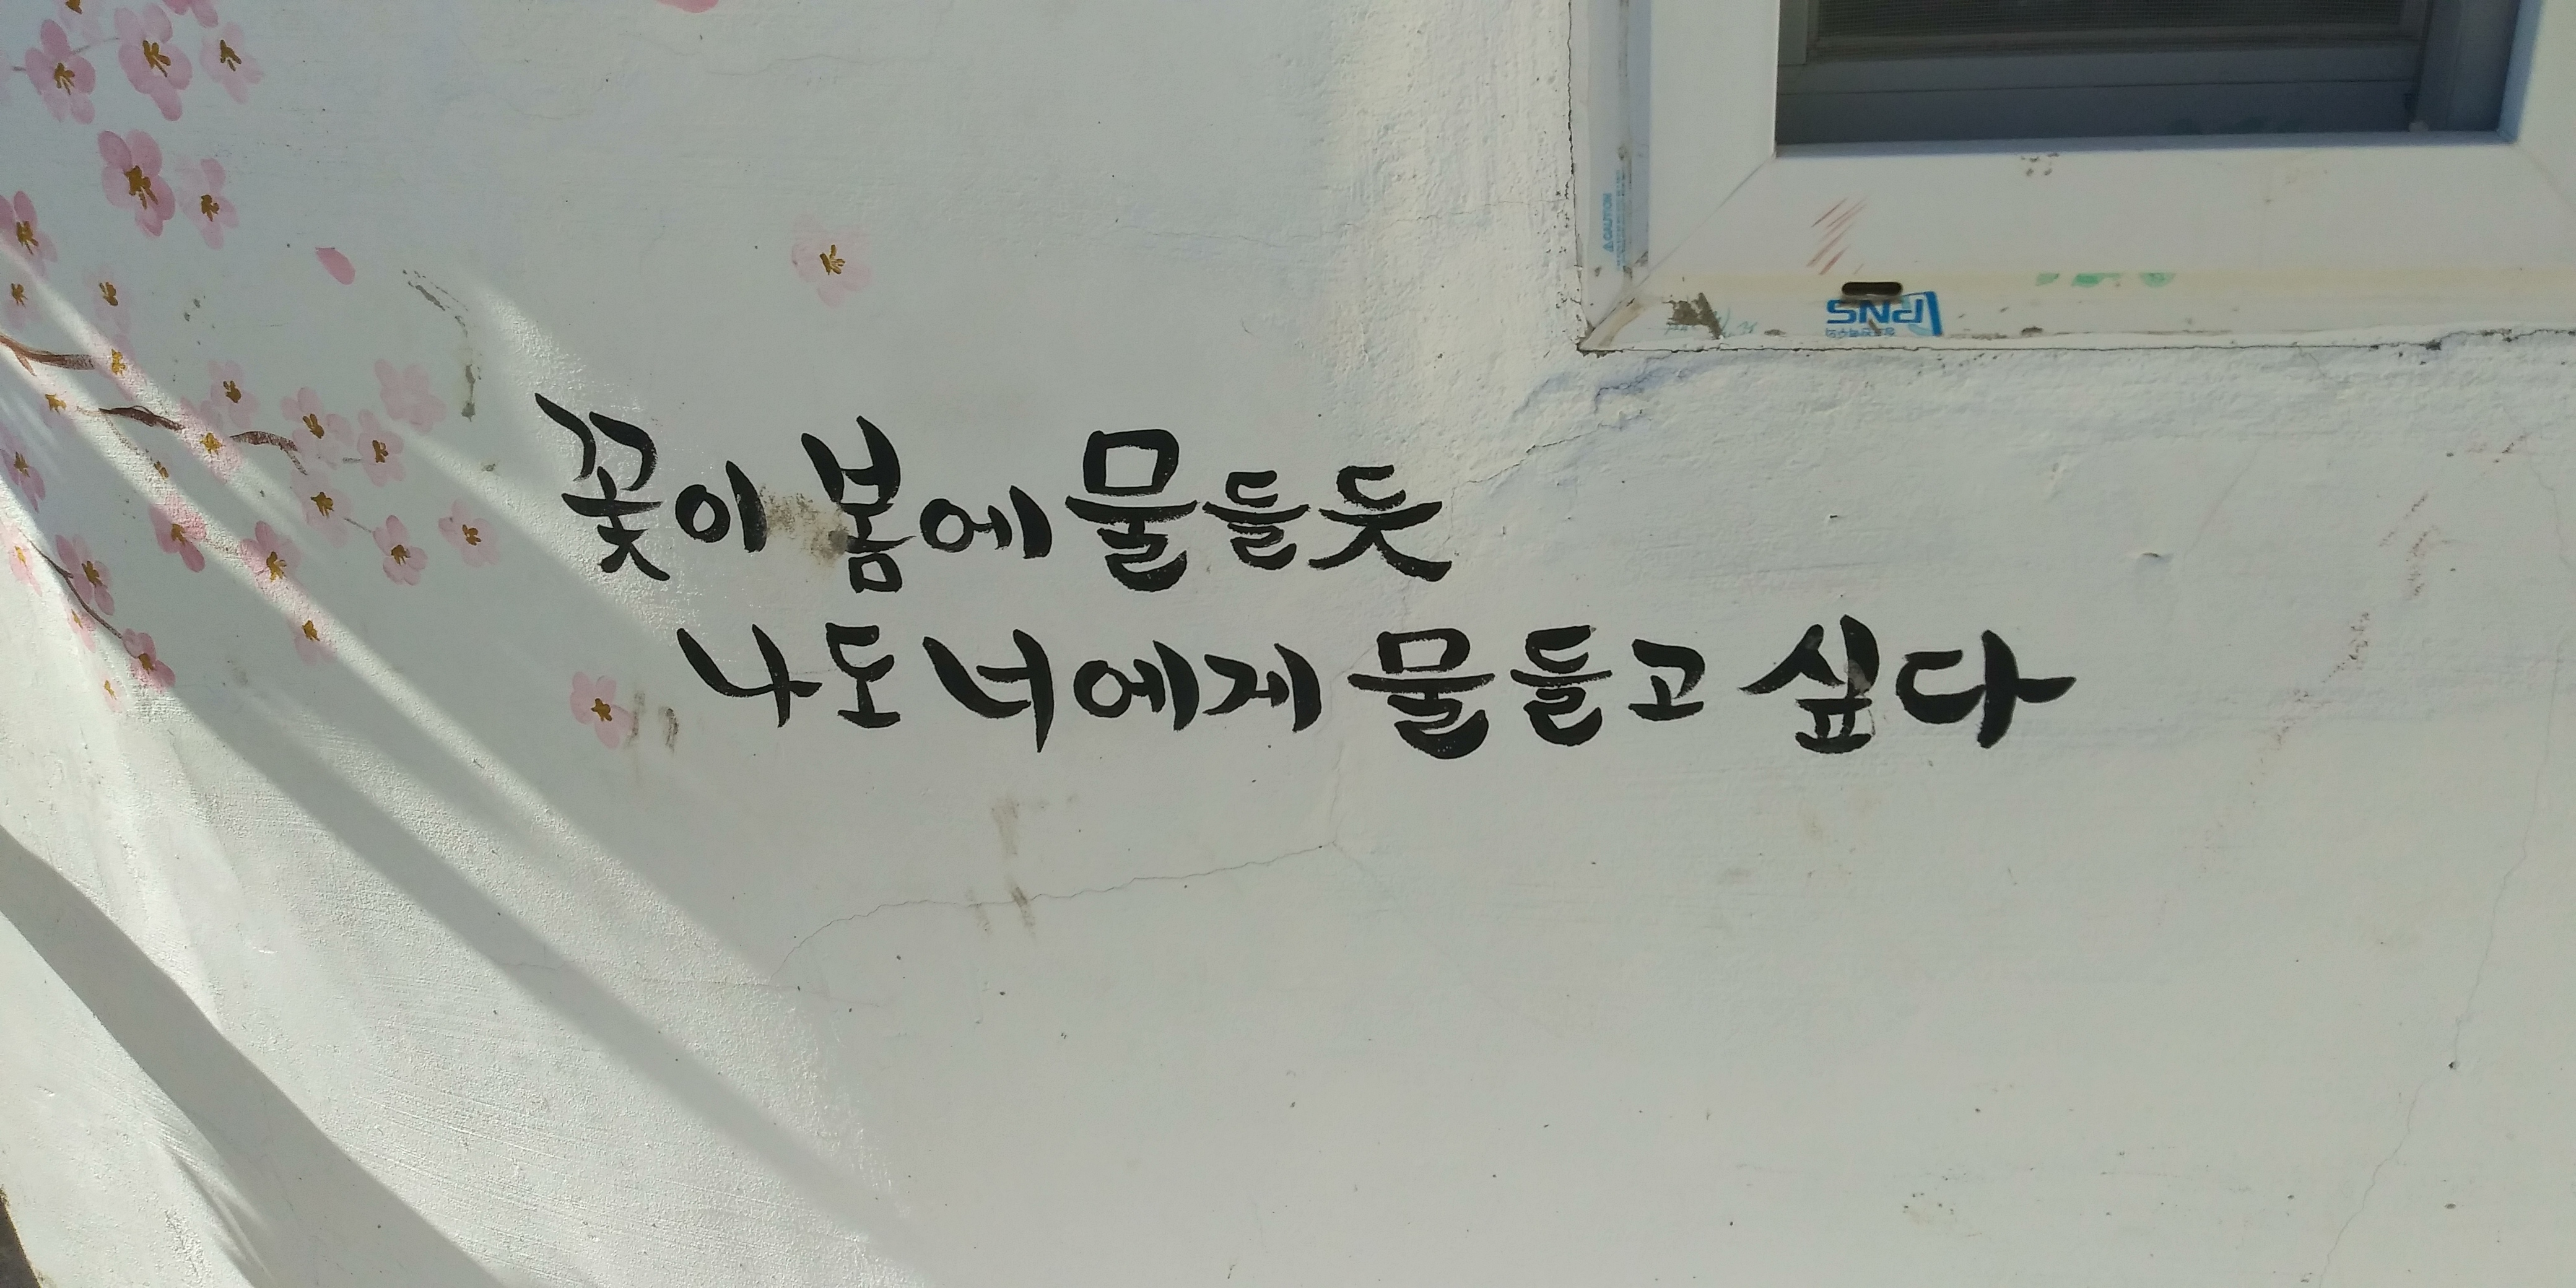 꽃이 봄에 물들듯
나도 너에게 물들고 싶다
PNS
CAUTION